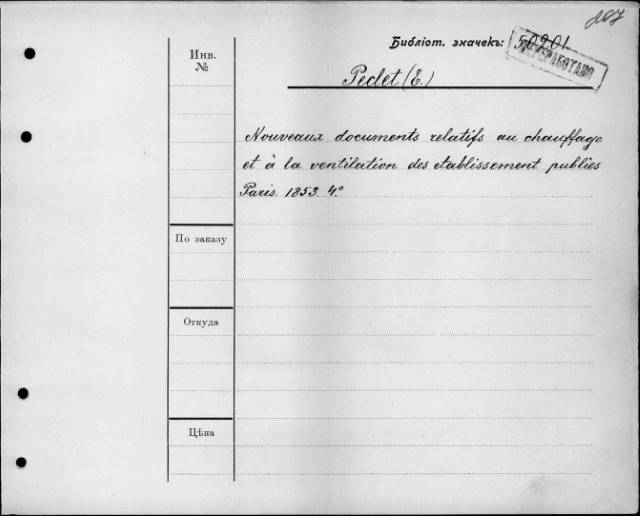 207
Библіот. значекъ: 50201
ПЕРЕРАБОТАНО
Инв.
№
Peclet (E.)
Nouveaux documents relatifs au chauffage
et à la ventilation des etablissement publies
Paris. 1853. 4º
По заказу
Откуда
Цѣна